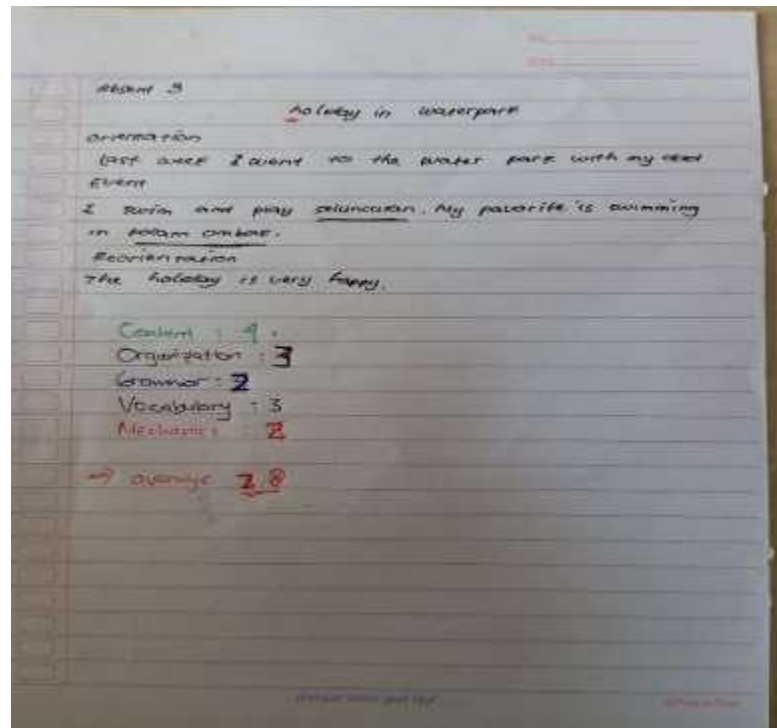 Absent 3
holiday in waterpark
orientation
Last week I went to the water park with my
Event
I swim and play seluncuran. My favorite is swimming
in kolam ombak.
Reorientation
The holiday is very happy.
Content : 4
Organization : 3
Grammar : 2
Vocabulary : 3
Mechanics : 2
→ average 2.8